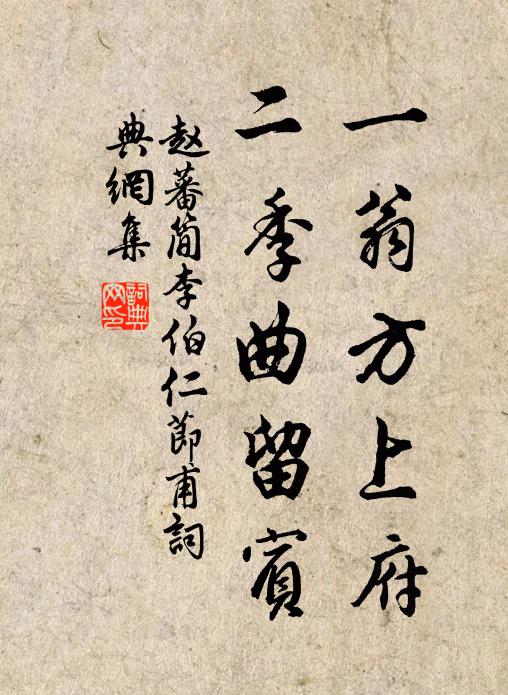 一翁方上府
二季曲留賓
赵蕃简李伯仁節甫詞
典網集
詞典
网印